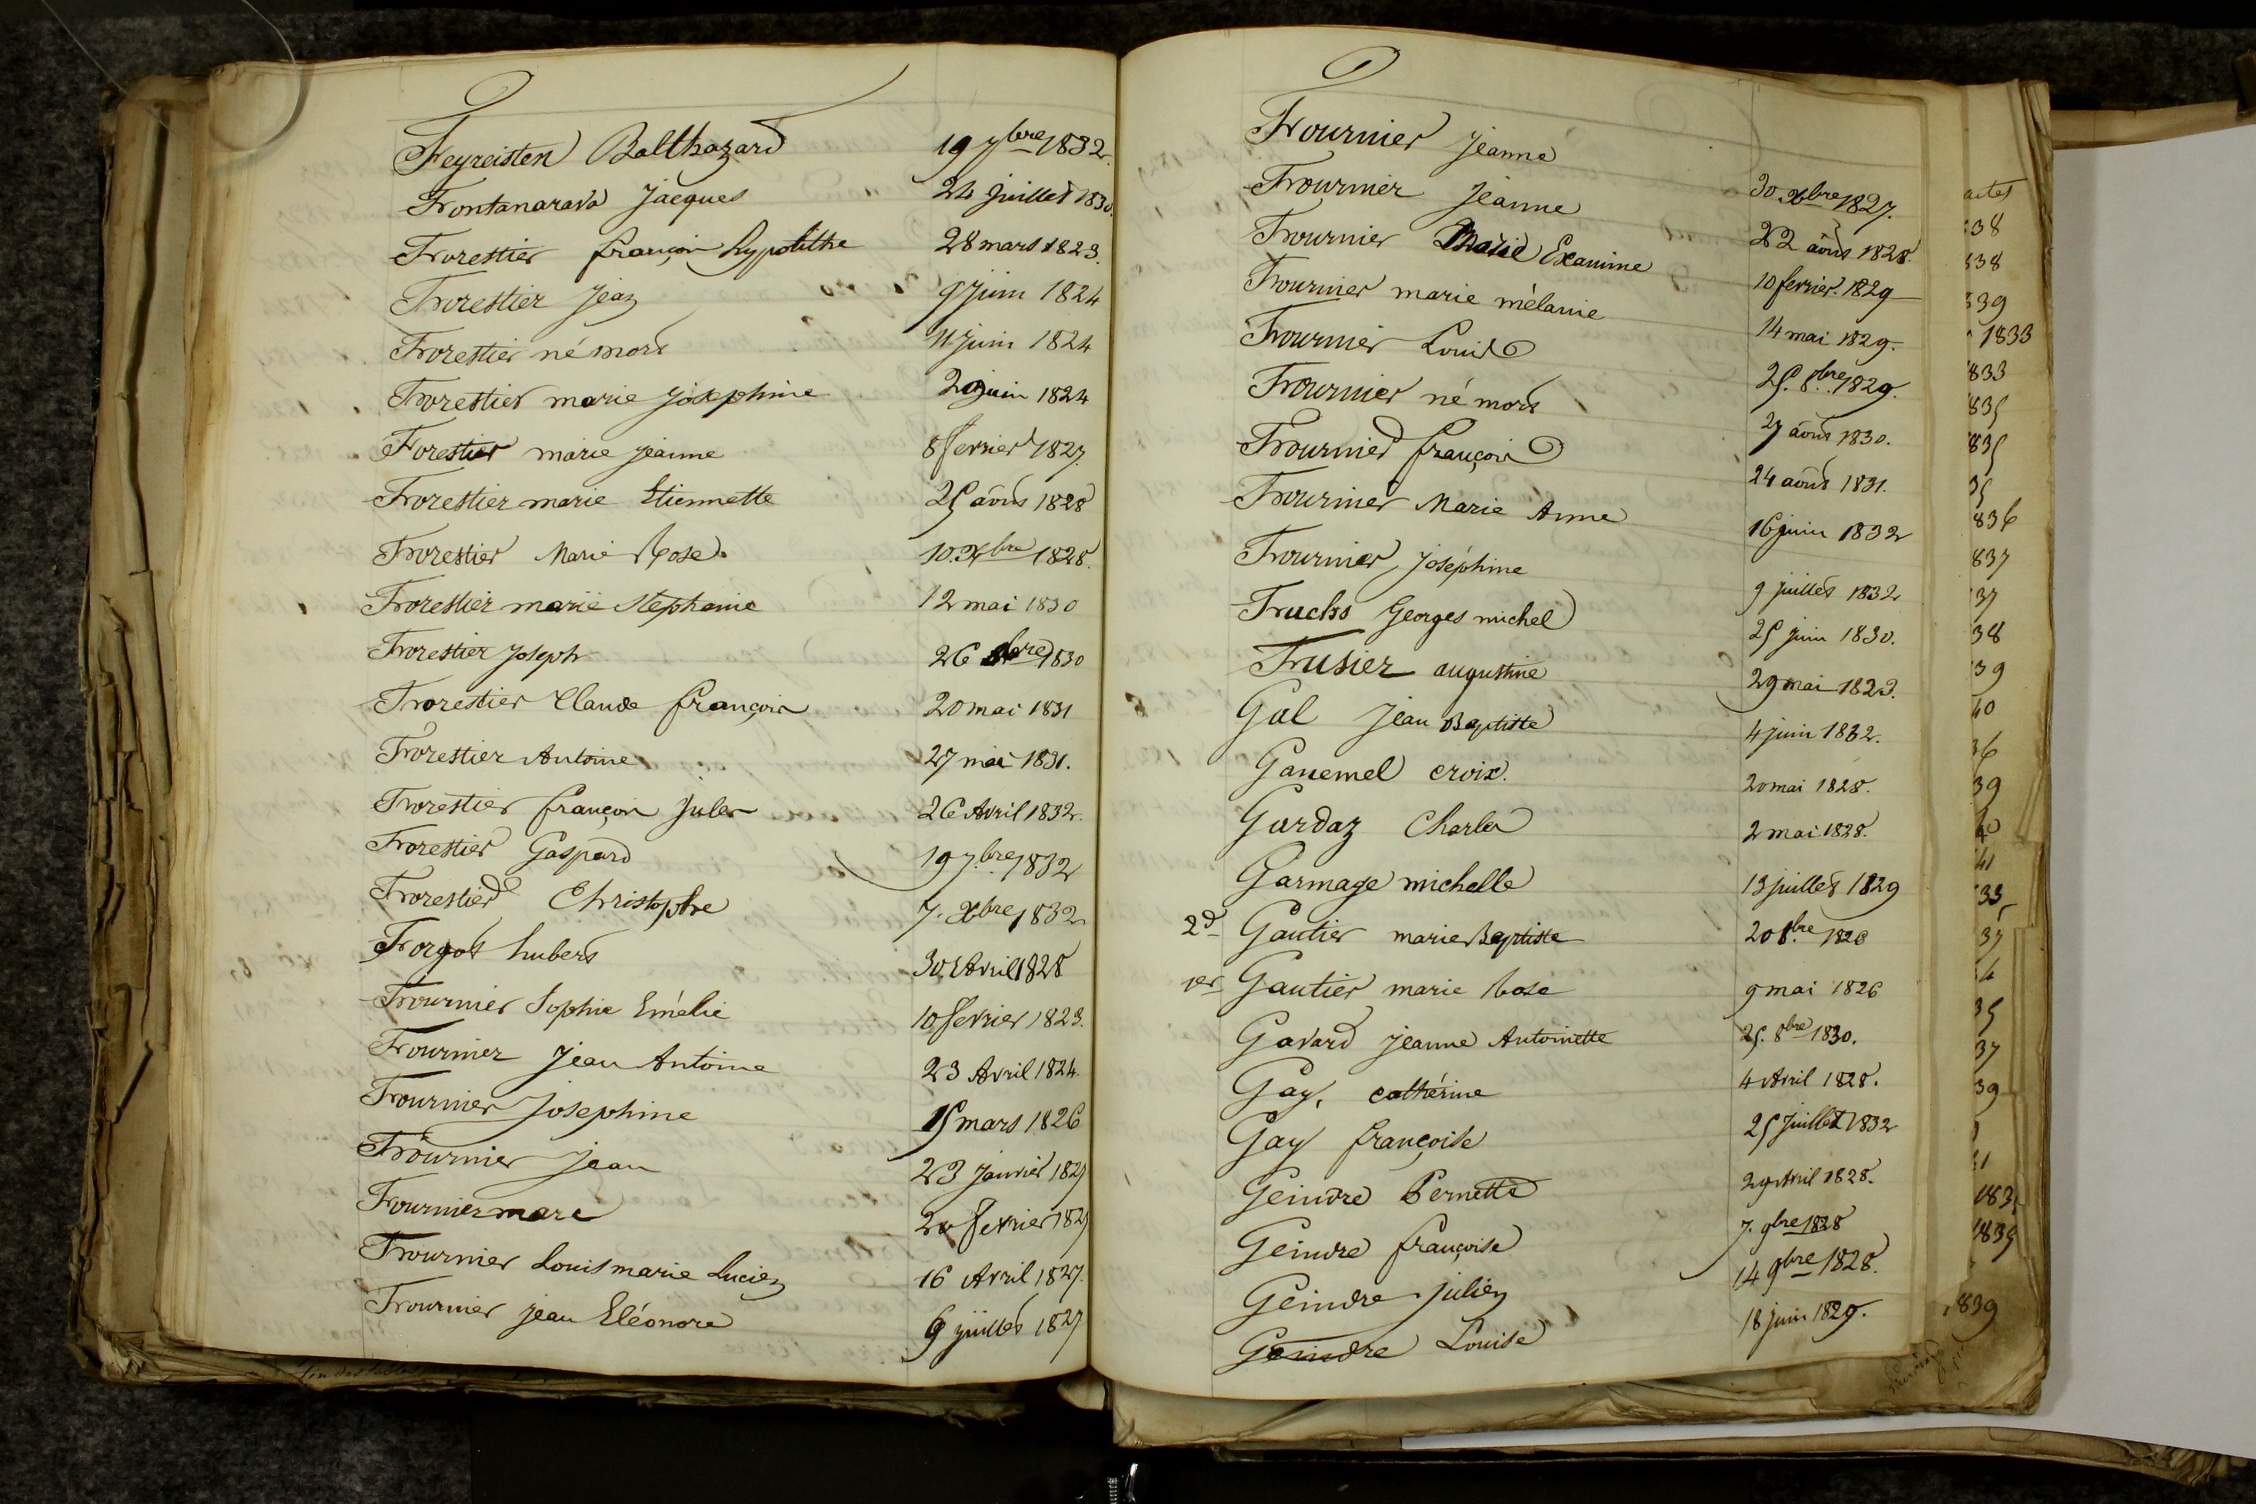 Feyreisten Balthazard 19 7bre 1832.
Fontanarava Jacques 24 juillet 1830.
Forestier françois hypolithe 28 mars 1823.
Forestier Jean 9 juin 1824
Forestier né mort 11 juin 1824
Forestier marie joséphine juin 1824
Forestier marie jeanne 8 fevrier 1827.
Forestier marie Etiennette 25 août 1828
Forestier Marie Rose 10. Xbre 1828.
Forestier marie Stephanie 12 mai 1830
Forestier Joseph 26 1830
Forestier Claude françois 20 mai 1831
Forestier Antoine 27 mai 1831.
Forestier françois Jules 26 Avril 1832.
Forestier Gaspard 19 7.bre 1832
Forestier Christophe 7. Xbre 1832
Forgot hubert 30 Avril 1828
Fournier Sophie Emélie 10 fevrier 1823.
Fournier Jean Antoine 23 Avril 1824.
Fournier Josephine 15 mars 1826
Fournier Jean 23 janvier 1827
Fournier marc fevrier 1827
Fournier Louis marie Lucien 16 Avril 1827.
Fournier jean Eléonore juillet 1827
Fournier Jeanne 30 Xbre 1827.
Fournier Jeanne 22 août 1828.
Fournier Marie Exanime 10 fevrier. 1829
Fournier marie mélanie 14 mai 1829.
Fournier Louis 25. 8bre 1829.
Fournier né mort 27 août 1830.
Fournier françois 24 août 1831.
Fournier Marie Anne 16 juin 1832
Fournier Joséphine 9 juillet 1832
Fuchs Georges michel 25 juin 1830.
Fusier augustine 29 mai 1823.
Gal Jean Baptiste 4 juin 1832.
Ganemel croix. 20 mai 1828.
Gardaz Charles 2 mai 1828.
Garmage michelle 13 juillet 1829
2d Gautier marie Baptiste 20 8.bre 1826
1er Gautier marie Rose 9 mai 1826
Gavard Jeanne Antoinette 25. 8bre 1830.
Gay, cathérine 4 Avril 1828.
Gay françoise 25 juillet 1832
Geindre Pernette 29 Avril 1828.
Geindre françoise 7. 9bre 1828
Geindre Julien 14 9bre 1828.
Geindre Louise 18 juin 1829.
actes
38
838
39
1833
833
835
835
35
836
837
37
38
39
40
36
39
41
35
37
39
1835
1839